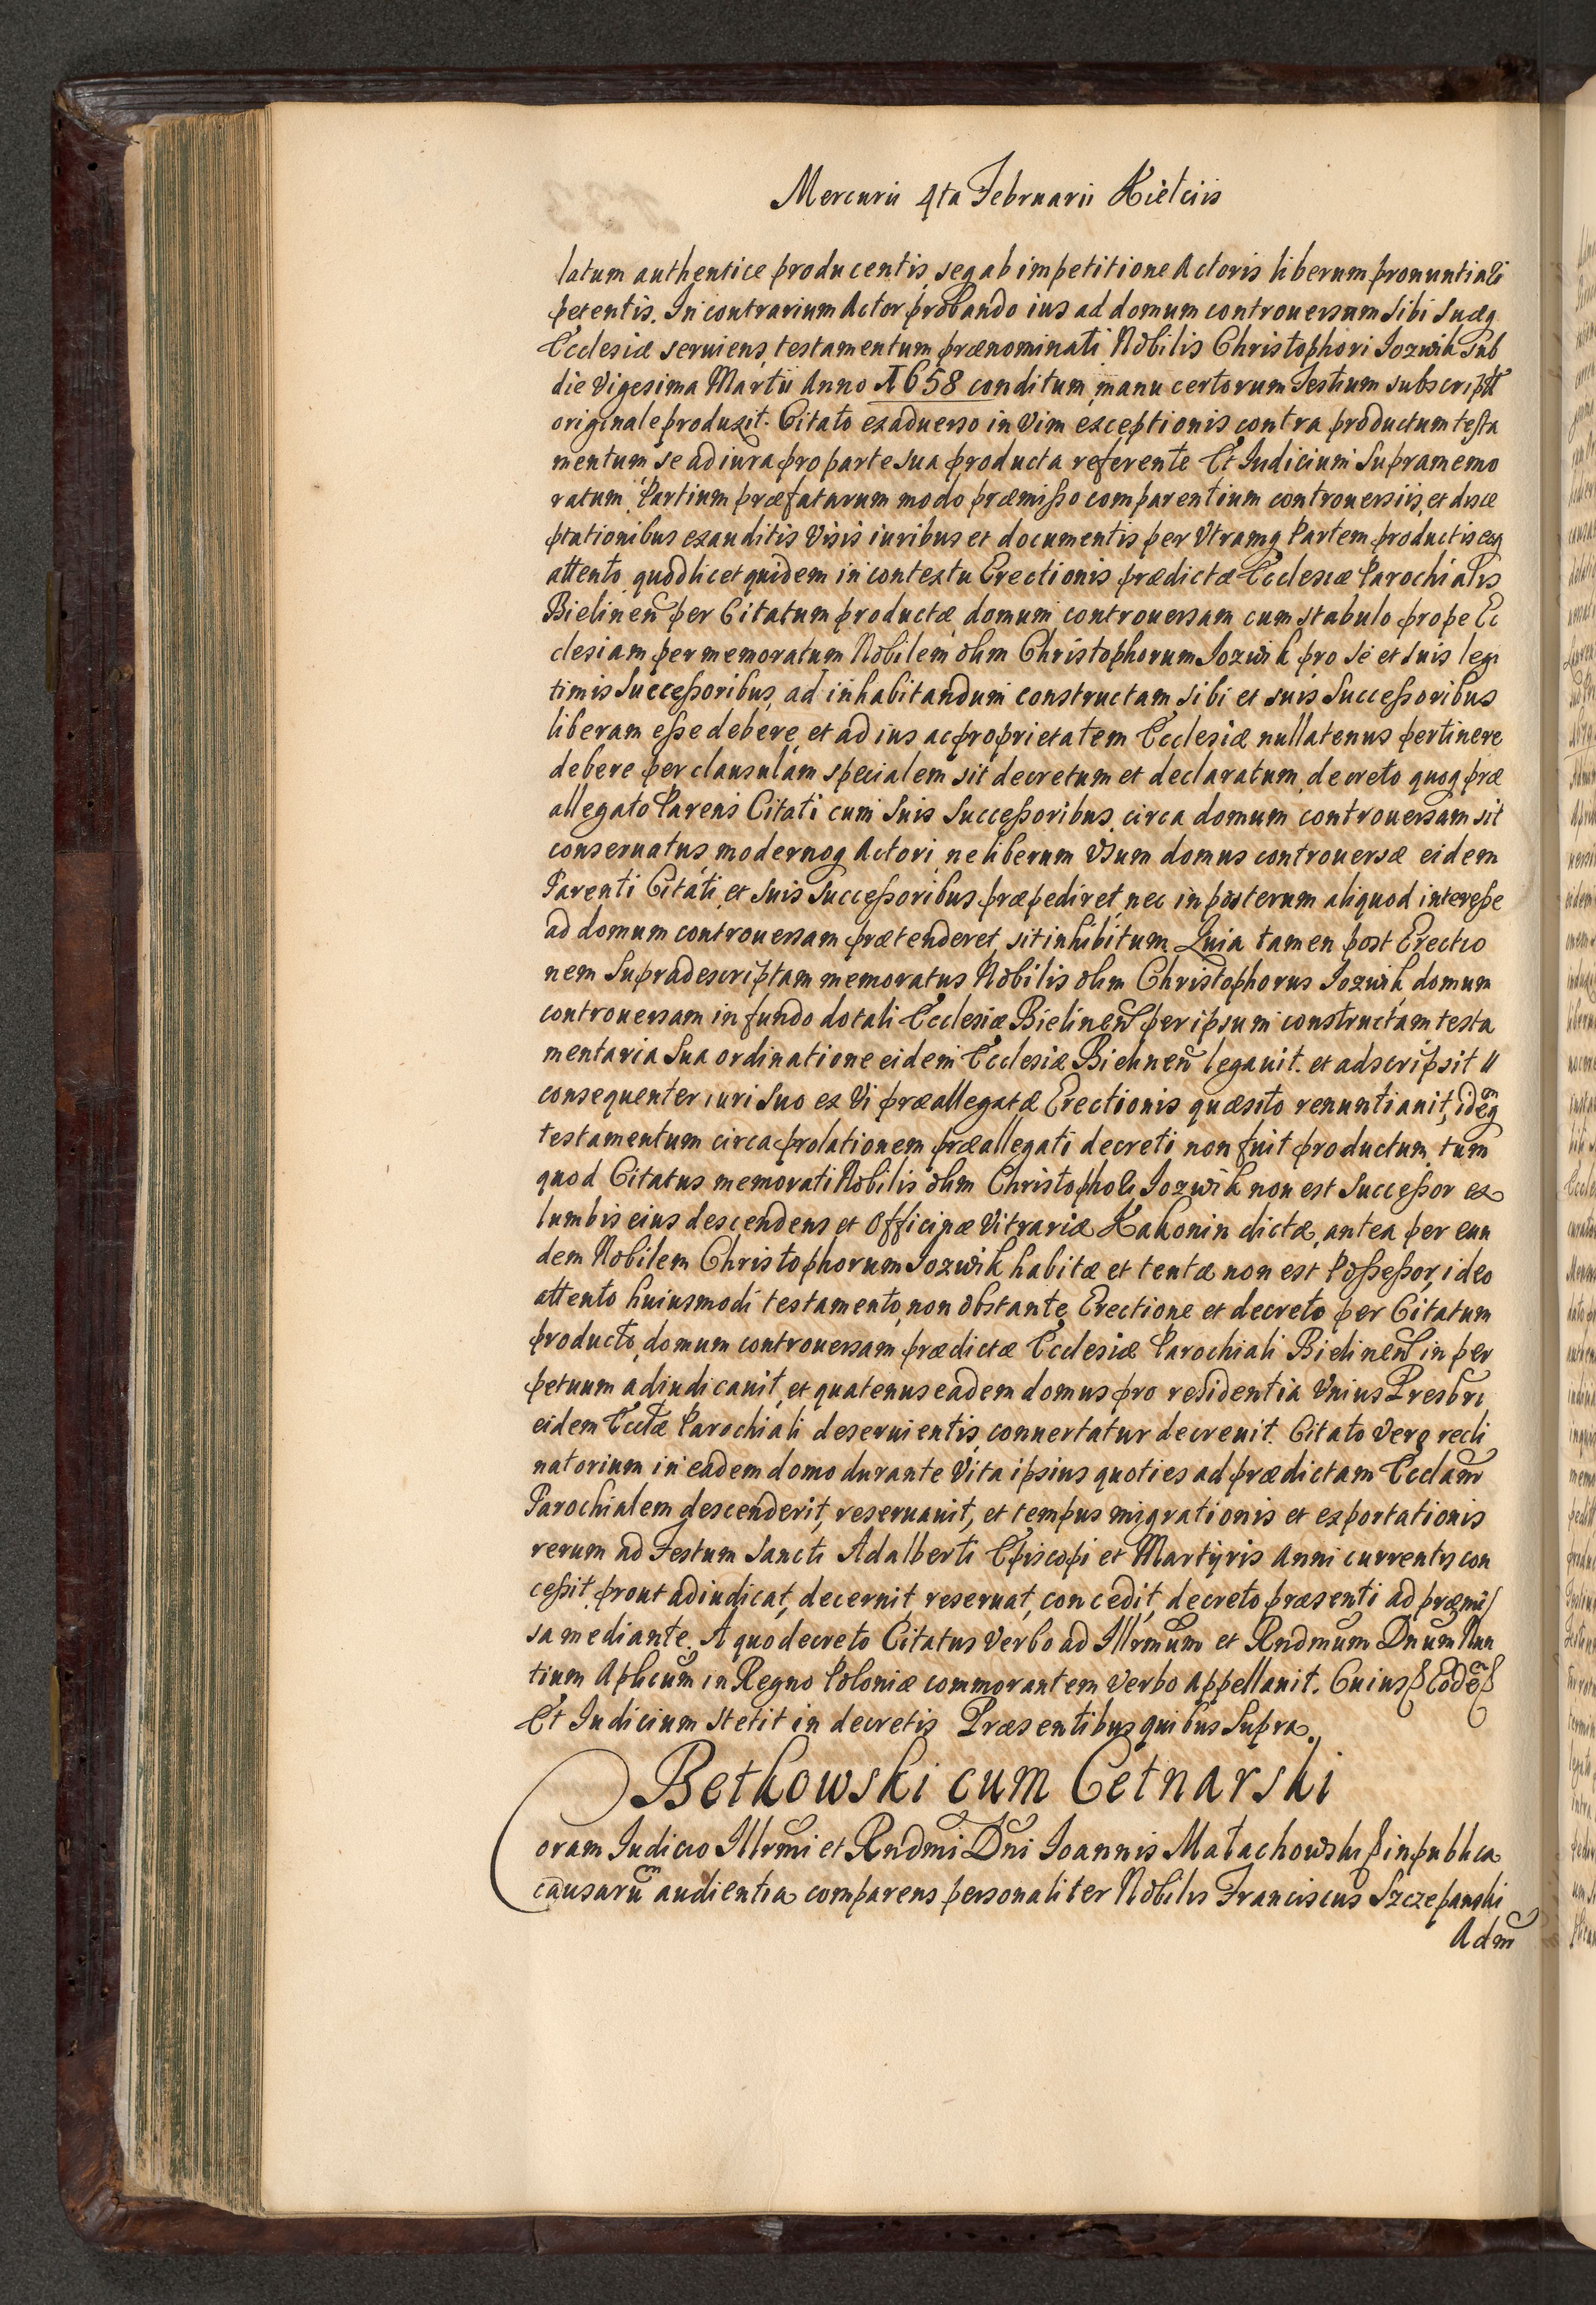 Mercurii 4ta Februarii Kielciis
latum authentice producentis, seq ab impetitione Actoris liberum pronuntiari
petentis. In contrarium Actor probando ius ad domum controuersam sibi suæq
Ecclesiæ seruiens, testamentum prænominati Nobilis Christophori Iozwik sub
die Vigesima Martii Anno 1658 conditum, manu certorum Testium subscriptū
originale produxit. Citato exaduerso in Vim exceptionis contra productum testa
mentum se ad iura pro parte sua producta referente Et Iudicium Supramemo
ratum Partium præfatarum modo præmisso comparentium controuersiis, et disce
ptationibus exauditis Visis iuribus et documentis per Vtramq Partem productis eoq
attento, quod licet quidem in contextu Erectionis prædictæ Ecclesiæ Parochialis
Bielinen̄ per Citatum productæ, domum controuersam cum stabulo prope Ec
clesiam per memoratum Nobilem olim Christophorum Iozwik pro se et suis legi
timis Successoribus, ad inhabitandum constructam sibi et suis Successoribus
liberam esse debere, et ad ius ac proprietatem Ecclesiæ nullatenus pertinere
debere per clausulam specialem sit decretum et declaratum, decreto quoq præ
allegato Parens Citati cum Suis Successoribus, circa domum controuersam sit
conseruatus, modernoq Actori, ne liberum Vsum domus controuersæ eidem
Parenti Citati, et suis successoribus præpediret, nec in posterum aliquod interesse
ad domum controuersam prætenderet, sit inhibitum. Quia tamen post Erectio
nem Supradescriptam memoratus Nobilis olim Christophorus Iozwik, domum
controuersam in fundo dotali Ecclesiæ Bielinen̄ per ipsum constructam testa
mentaria Sua ordinatione eidem Ecclesiæ Bielinen̄ legauit. et adscripsit
consequenter iuri Suo ex Vi præallegatæ Erectionis quæsito renuntiauit, idē̄q
testamentum circa prolationem præallegati decreti non fuit productum, tum
quod Citatus memorati Nobilis olim Christophori Iozwik non est Successor ex
lumbis eius descendens et Officinæ Vitrariæ Kakonin dictæ, antea per eun
dem Nobilem Christophorum Iozwik habitæ et tentæ non est Possessor, ideo
attento huiusmodi testamento, non obstante Erectione et decreto per Citatum
producto, domum controuersam prædictæ Ecclesiæ Parochiali Bielinen̄ in per
petuum adiudicauit, et quatenus eadem domus pro residentia Vnius Presbri
eidem Ecclæ Parochiali deseruientis, conuertatur decreuit. Citato Vero recli
natorium in eadem domo durante Vita ipsius quoties ad prædictam Ecclam̄
Parochialem descenderit, reseruauit, et tempus migrationis et exportationis
rerum ad Festum Sancti Adalberti Episcopi et Martyris Anni currentis con
cessit, prout adiudicat, decernit, reseruat, concedit, decreto præsenti ad præmis
sa mediante. A quo decreto Citatus Verbo ad Illrmum et Rndmum Dnum Nun
tium Aplicum in Regno Poloniæ commorantem Verbo Appellauit. Cuius Eodē
Et Iudicium stetit in decretis Præsentibus quibus Supra.
Betkowski cum Cetnarski
Coram Iudicio Illrmi et Rndmi Dni Ioannis Małachowski in publica
causarū audientia comparens personaliter Nobilis Franciscus Szczepanski
Adm̄